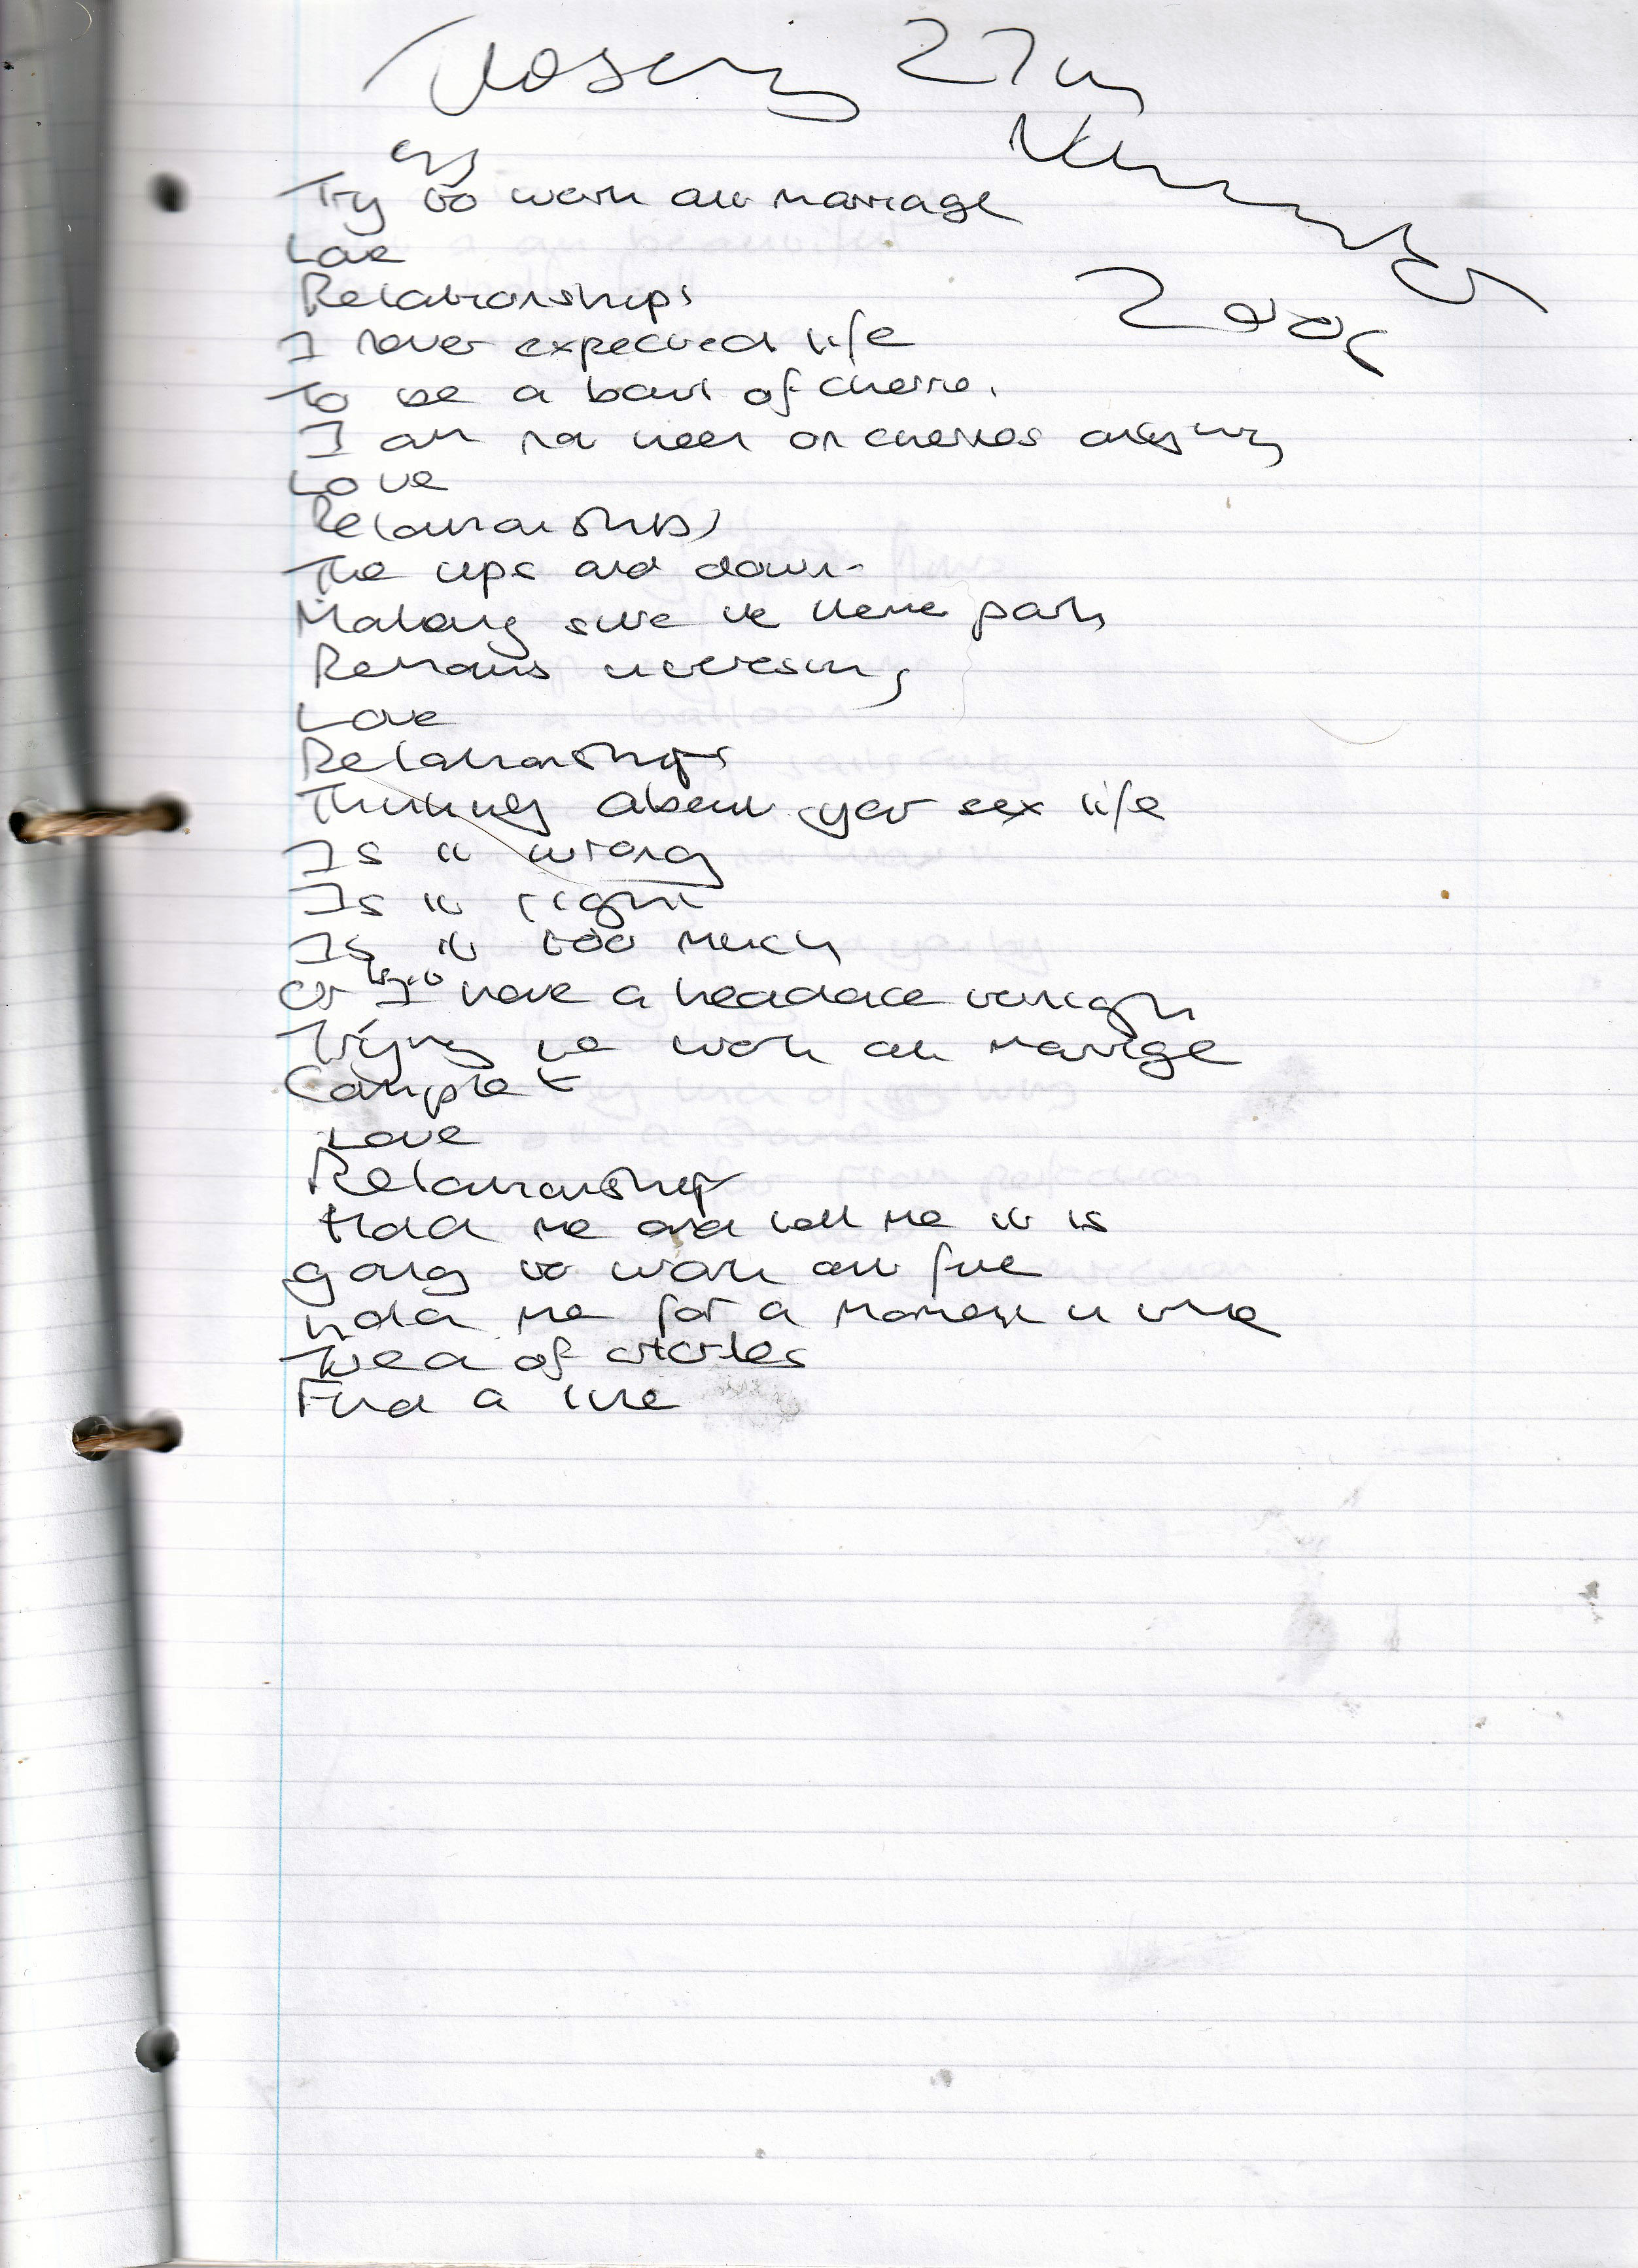 27th
November
2005
ing
Try to work out marriage
Love
Relationships
I never expected life
To be a bowl of cherries
I am not keen on cherries anyway
Love
Relationships
The ups and downs
Making sure the
Remains interesting
Love
Relationships
Thinking about your sex life
Is it wrong
Is it right
Is it too much
Or is it I have a headace tonight
Trying to work out marrige
Complet
Love
Relationship
Hold me and tell me it is
going to work out fine
Hold me for a moment in time
Tired of
Find a line